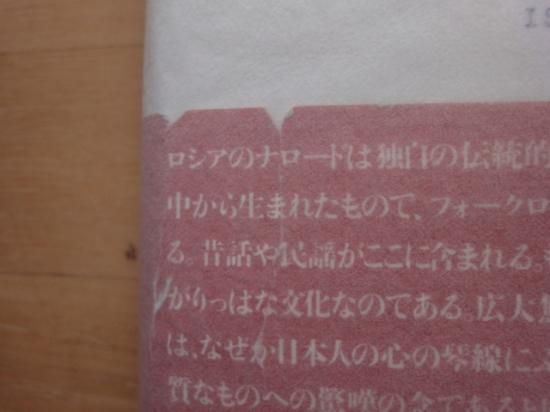 IS
ロシアのナロードは独自の伝統的
中から生まれたもので、フォークロ
る。昔話や民謡がここに含まれる。
がりっぱな文化なのである。広大
は、なぜか日本人の心の琴線に
質なものへの驚嘆の念である